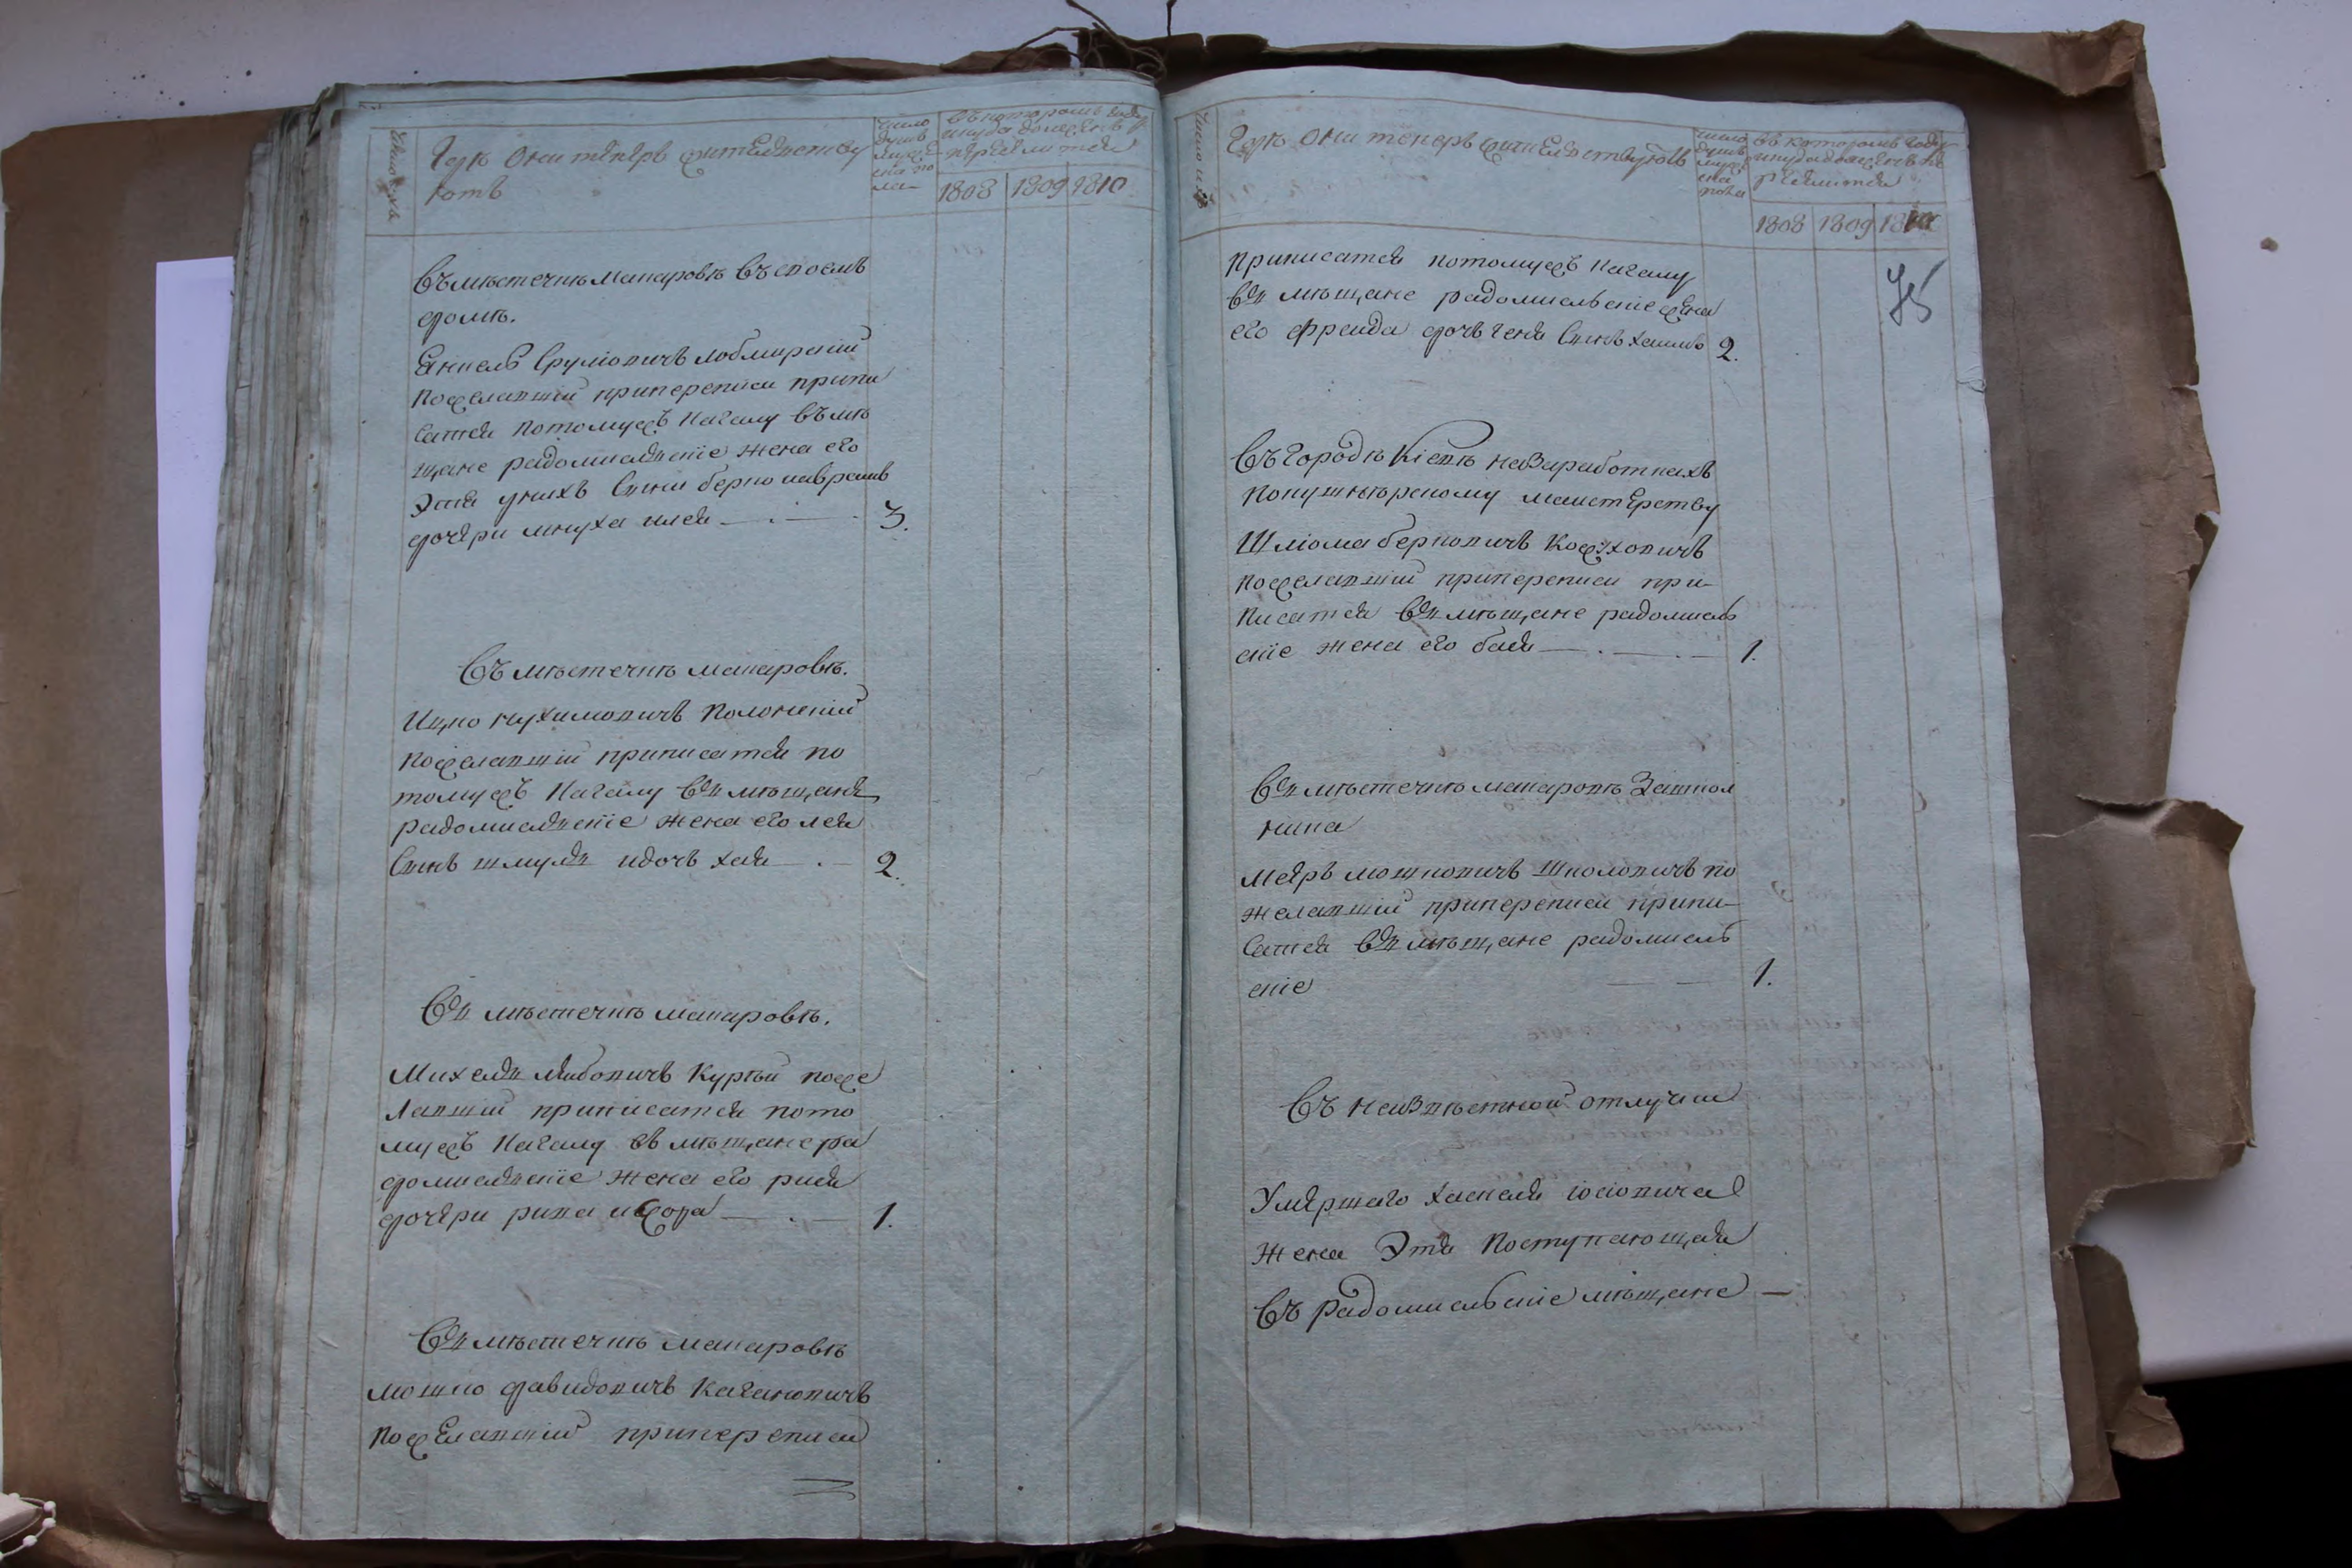 Число ихъ
Гдѣ они теперь жительству
ютъ
число
душъ
мужес
ска по
ла
Въ которомъ году
и куда долженъ
переселится
1808 1809 1810
Въ мѣстечкѣ Макаровѣ въ своемъ
домѣ.
Янкель Срулiовичъ
пожелавшiй при переписи припи
сатся потомужъ кагалу въ мѣ
щане радомисльскiе жена его
Этя у нихъ сыни Берко и Аврамъ
дочери Мнуха и Лея 3.
Въ мѣстечкѣ Макаровѣ.
Ицко Нухимовичъ Полонскiй
пожелавшiй приписатся по
томужъ кагалу въ мѣщане
радомисльскiе жена его Лея
сынъ Шмуль и дочъ Хая 2.
Въ мѣстечкѣ Макаровѣ.
Михель Лейбовичъ поже
лавшiй приписатся пото
мужъ кагалу въ мѣщане ра
домисльскiе жена его Рися
дочери Рива и Сора 1.
Въ мѣстечкѣ Макаровѣ
Мошко Давидовичъ Кагановичъ
пожелавшiй при переписи
Число ихъ
Гдѣ они теперь жительствуютъ
число
душъ
муж
ска
пола
въ которомъ году
и куда долженъ пе
реселится
1808 1809 1810
75
приписатся потомужъ кагалу
въ мѣщане радомисльскiе жена
его Фрейда дочъ Геня сынъ Хаимъ 2.
Въ городѣ Кiевѣ на заработкахъ
по кушнѣрскому маистерству
Шлiома Берковичъ
пожелавшiй при переписи при-
писатся въ мѣщане радомисль
скiе жена его Бася 1.
Въ мѣстечкѣ Макаровѣ за школ
ника
Меяръ Мошковичъ Школовичъ по
желавшiй при переписи припи-
сатся въ мѣщане радомисль
скiе 1.
Въ неизвѣстной отлучки
Умершаго Хаскеля Iосiовича
жена Этя поступающая
въ радомисльскiе мѣщане —